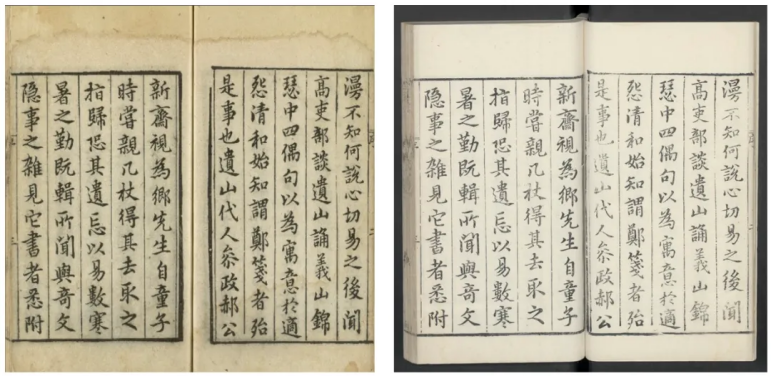 漫不知何說心切易之後聞
高吏部談遺山誦義山錦
瑟中四偶句以為寓意於適
怨清和始知謂鄭箋者殆
是事也遺山代人叅政郝公
新齋視為鄉先生自童子
時嘗親几杖得其去取之
指歸恐其遺忘以易數寒
暑之勤既輯所聞與竒文
隠事之雜見它書者悉附
漫不知何說心切易之後聞
高吏部談遺山誦義山錦
瑟中四偶句以為寓意於適
怨清和始知謂鄭箋者殆
是事也遺山代人叅政郝公
新齋視為鄉先生自童子
時嘗親几杖得其去取之
指歸恐其遺忘以易數寒
暑之勤既輯所聞與竒文
隠事之雜見它書者悉附